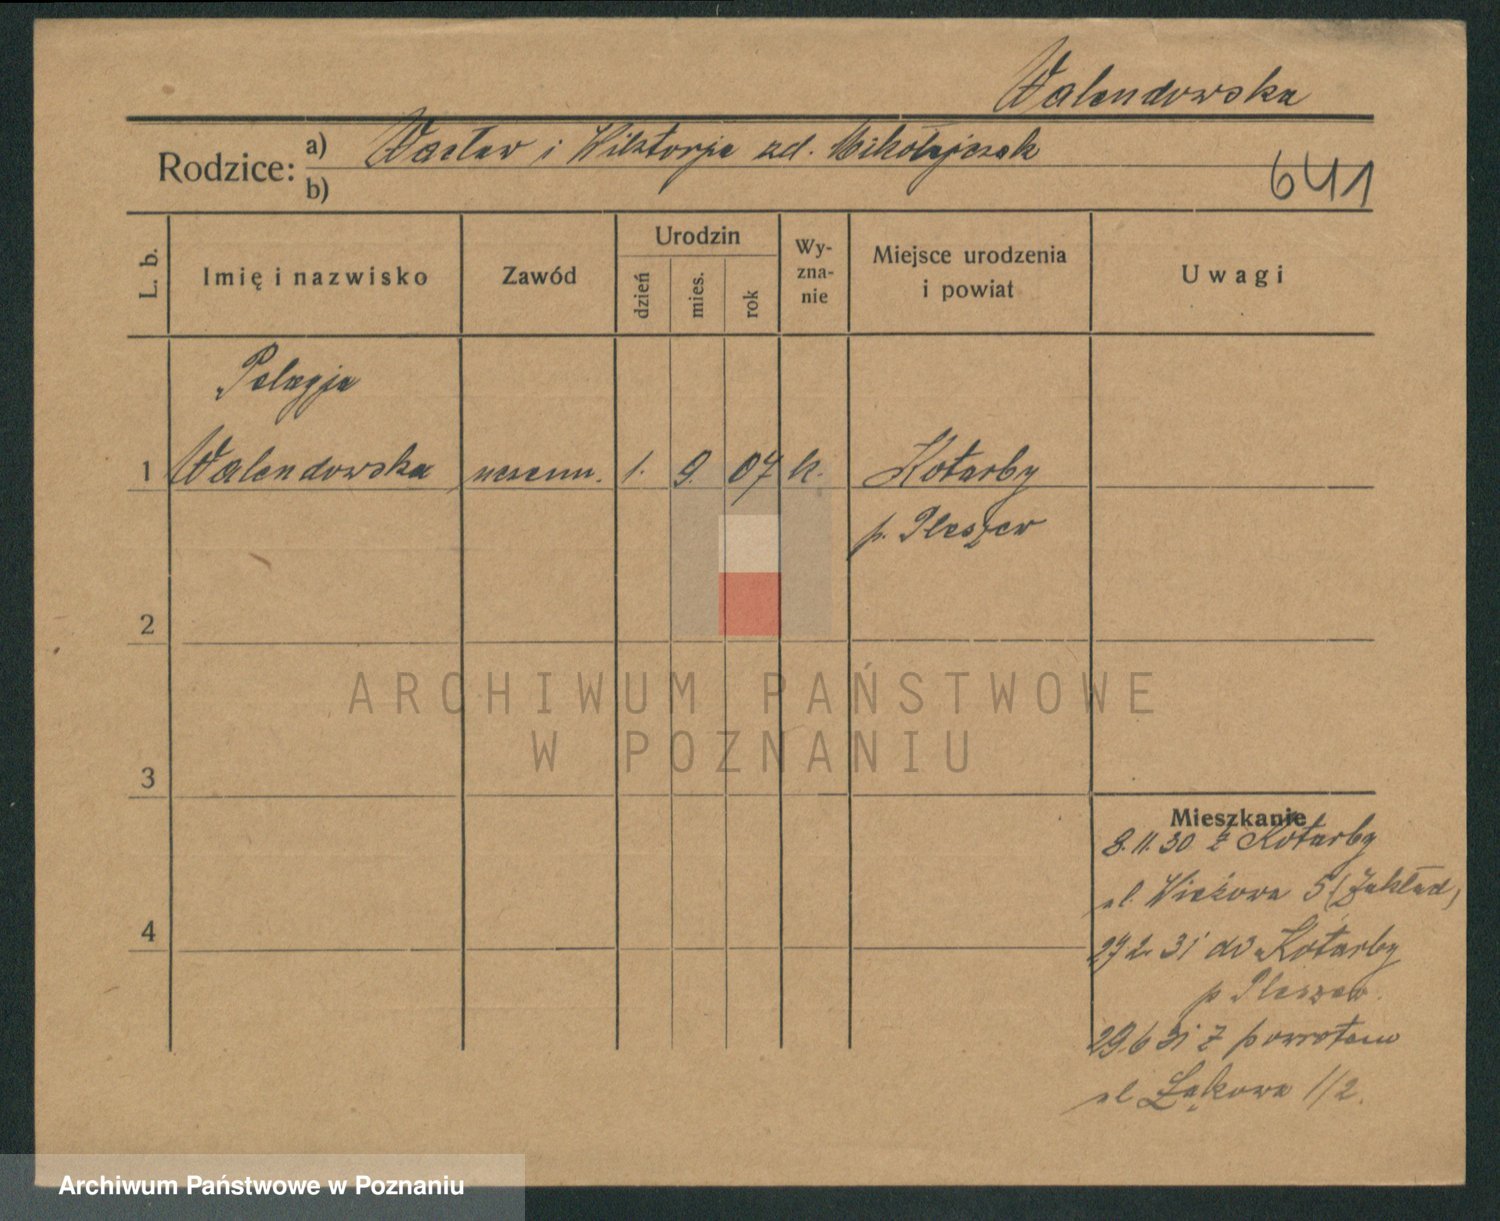 Walendowska
Rodzice: a) Wacław i Wiktorja zd. Mikołajczak
b)
641
L. b.
Imię i nazwisko
Zawód
Urodzin
dzień
mies.
rok
Wy-
zna-
nie
Miejsce urodzenia
i powiat
Uwagi
Pelagja
1 Walendowska uczenn. 1. 9. 07 k. Kotarby
p. Pleszew
2
ARCHIWUM PAŃSTWOWE
W POZNANIU
3
Mieszkanie
8.11.30 z Kotarby
ul. Wieżowa 5 (Zakład)
4
27 2 31 do Kotarby
p Pleszew.
29.6 31 z powrotem
ul Łąkowa 1/2.
Archiwum Państwowe w Poznaniu